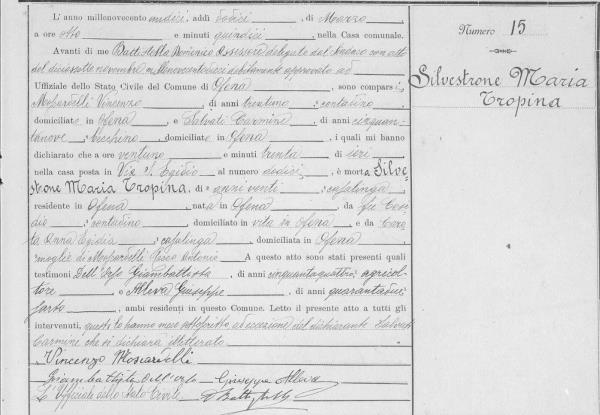 L'anno millenovecento undici, addì dodici di Marzo,
a ore otto e minuti quindici, nella Casa comunale.
Numero 15
Avanti di me Battistella Domenico Assessore delegato dal Sindaco con atto
del diciassette novembre millenovecentodieci debitamente approvato ed
Uffiziale dello Stato Civile del Comune di Ofena, sono comparsi:
Silvestrone Maria
Tropina
Moscardelli Vincenzo, di anni trentuno, contadino
domiciliato in Ofena e Salvati Carmine, di anni cinquan-
tanove, domiciliato in Ofena, i quali mi hanno
dichiarato che a ore ventuno e minuti trenta di ieri,
nella casa posta in Via S. Egidio al numero dodici, è morta Silve-
strone Maria Tropina, di anni venti, casalinga,
residente in Ofena, nata in Ofena, da fu
contadino, domiciliato in vita in Ofena e da
Anna Egidia, casalinga, domiciliata in Ofena,
moglie di Moscardelli Antonio A questo atto sono stati presenti quali
testimoni Dell'Orso Giambattista, di anni cinquantaquattro, agricol-
tore e Alleva Giuseppe, di anni quarantadue,
sarto, ambi residenti in questo Comune. Letto il presente atto a tutti gli
intervenuti, questi lo hanno meco sottoscritto ad eccezione del dichiarante Salvati
Carmine che si dichiara illetterato
Vincenzo Moscardelli
Giambattista dell'Orso Giuseppe Alleva
L'Ufficiale dello Stato Civile